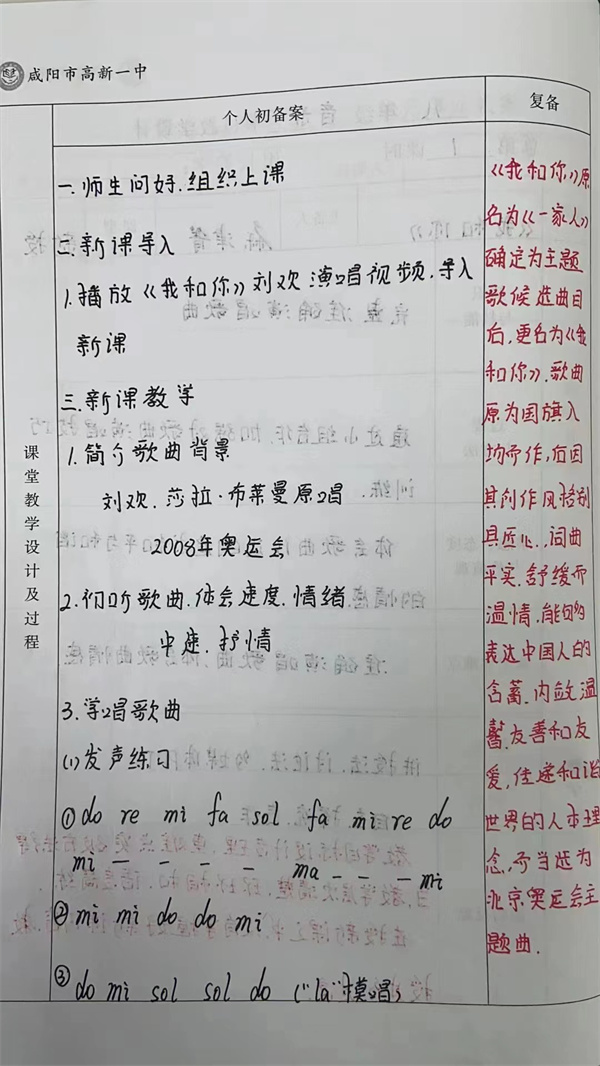 咸阳市高新一中
个人初备案
复备
课堂教学设计及过程
一.师生问好.组织上课
二.新课导入
1.播放《我和你》刘欢演唱视频.导入
新课
三.新课教学
1.简介歌曲背景
刘欢.莎拉·布莱曼原唱
2008年奥运会
2.初听歌曲.体会速度.情绪
中速.抒情
3.学唱歌曲
(1)发声练习
①do re mi fa sol fa mi re do
mi — — — — ma — — — mi
②mi mi do do mi
③do mi sol sol do ("la"模唱)
《我和你》原
名为《一家人》
确定为主题
歌候选曲目
后,更名为《我
和你》.歌曲
原为国旗入
场而作,后因
其创作风格别
具匠心.词曲
平实.舒缓而
温情.能够
表达中国人的
含蓄.内敛温
馨.友善和友
爱,传递和谐
世界的人本理
念,而当选为
北京奥运会主
题曲.